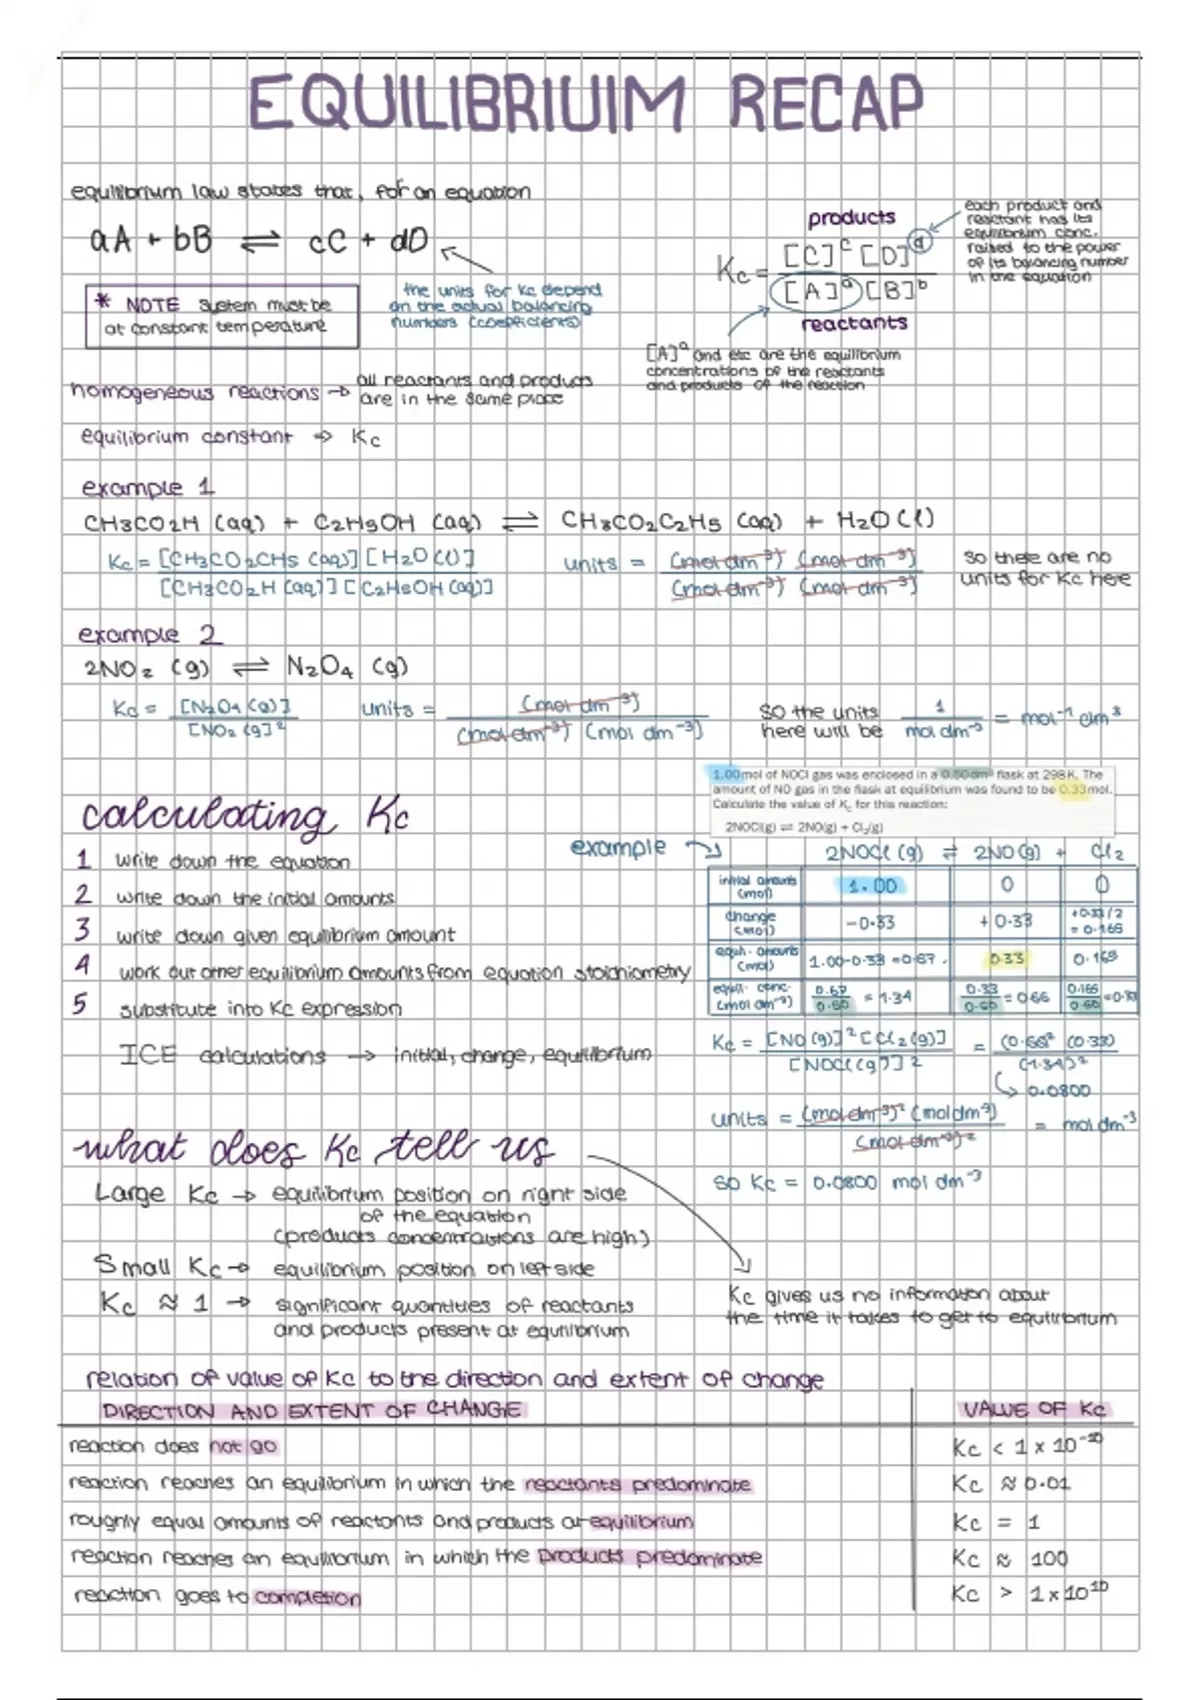 EQUILIBRIUIM RECAP
equilibrium law states that, for an equation
aA + bB ⇌ cC + dD
* NOTE system must be
at constant temperature
the units for Kc depend
on the actual balancing
numbers (coefficients)
products
Kc = [C]ᶜ [D]ᵈ
[A]ᵃ [B]ᵇ
reactants
each product and
reactant has its
equilibrium conc.
raised to the power
of its balancing number
in the equation
[A]ᵃ and etc are the equilibrium
concentrations of the reactants
and products of the reaction
homogeneous reactions → all reactants and products
are in the same place
equilibrium constant → Kc
example 1
CH3CO2H (aq) + C2H5OH (aq) ⇌ CH3CO2C2H5 (aq) + H2O (l)
Kc = [CH3CO2CH5 (aq)] [H2O (l)]
[CH3CO2H (aq)] [C2H5OH (aq)]
units = (mol dm⁻³) (mol dm⁻³)
(mol dm⁻³) (mol dm⁻³)
so there are no
units for Kc here
example 2
2NO2 (g) ⇌ N2O4 (g)
Kc = [N2O4 (g)]
[NO2 (g)]²
units = (mol dm⁻³)
(mol dm⁻³) (mol dm⁻³)
so the units
here will be
1
mol dm⁻³
= mol⁻¹ dm³
calculating Kc
1 write down the equation
2 write down the initial amounts
3 write down given equilibrium amount
4 work out other equilibrium amounts from equation stoichiometry
5 substitute into Kc expression
ICE calculations → initial, change, equilibrium
1.00 mol of NOCl gas was enclosed in a 0.50 dm³ flask at 298 K. The
amount of NO gas in the flask at equilibrium was found to be 0.33 mol.
Calculate the value of Kc for this reaction:
2NOCl(g) ⇌ 2NO(g) + Cl₂(g)
example
2NOCl (g) ⇌ 2NO (g) + Cl2
initial amounts
(mol)
1.00 0 0
change
(mol)
-0.33 +0.33 +0.33/2
= 0.165
equib. amounts
(mol)
1.00-0.33 = 0.67 0.33 0.165
equil. conc.
(mol dm⁻³)
0.67
0.50
= 1.34
0.33
0.50
= 0.66
0.165
0.50
Kc = [NO (g)]² [Cl2 (g)]
[NOCl (g)]²
= (0.66)² (0.33)
(1.34)²
↳ 0.0800
units = (mol dm⁻³)² (mol dm⁻³)
(mol dm⁻³)²
= mol dm⁻³
so Kc = 0.0800 mol dm⁻³
what does Kc tell us
Large Kc → equilibrium position on right side
of the equation
(products concentrations are high)
Small Kc → equilibrium position on left side
Kc ≈ 1 → significant quantities of reactants
and products present at equilibrium
Kc gives us no information about
the time it takes to get to equilibrium
relation of value of Kc to the direction and extent of change
DIRECTION AND EXTENT OF CHANGE VALUE OF Kc
reaction does not go Kc < 1 x 10⁻¹⁰
reaction reaches an equilibrium in which the reactants predominate Kc ≈ 0.01
roughly equal amounts of reactants and products at equilibrium Kc = 1
reaction reaches an equilibrium in which the products predominate Kc ≈ 100
reaction goes to completion Kc > 1 x 10¹⁰